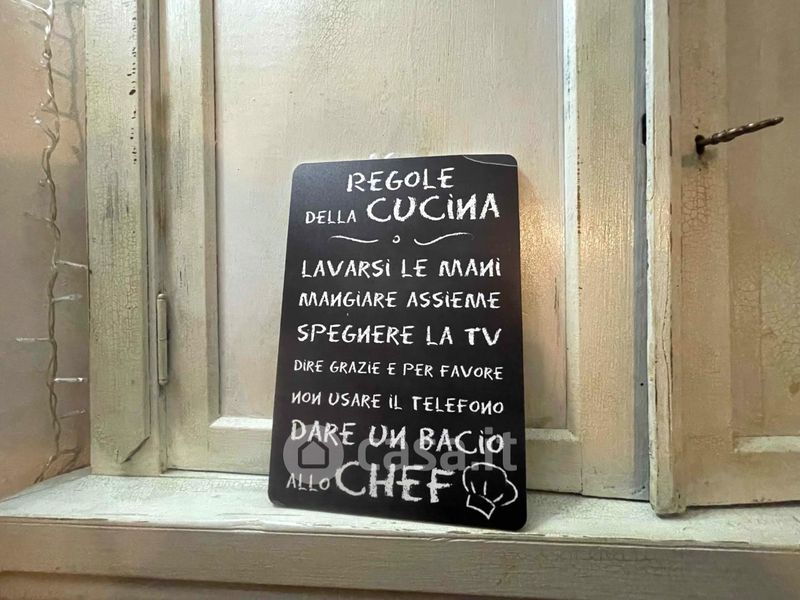 REGOLE
DELLA CUCINA
LAVARSI LE MANI
MANGIARE ASSIEME
SPEGNERE LA TV
DIRE GRAZIE E PER FAVORE
NON USARE IL TELEFONO
DARE UN BACIO
casa.it
ALLO CHEF